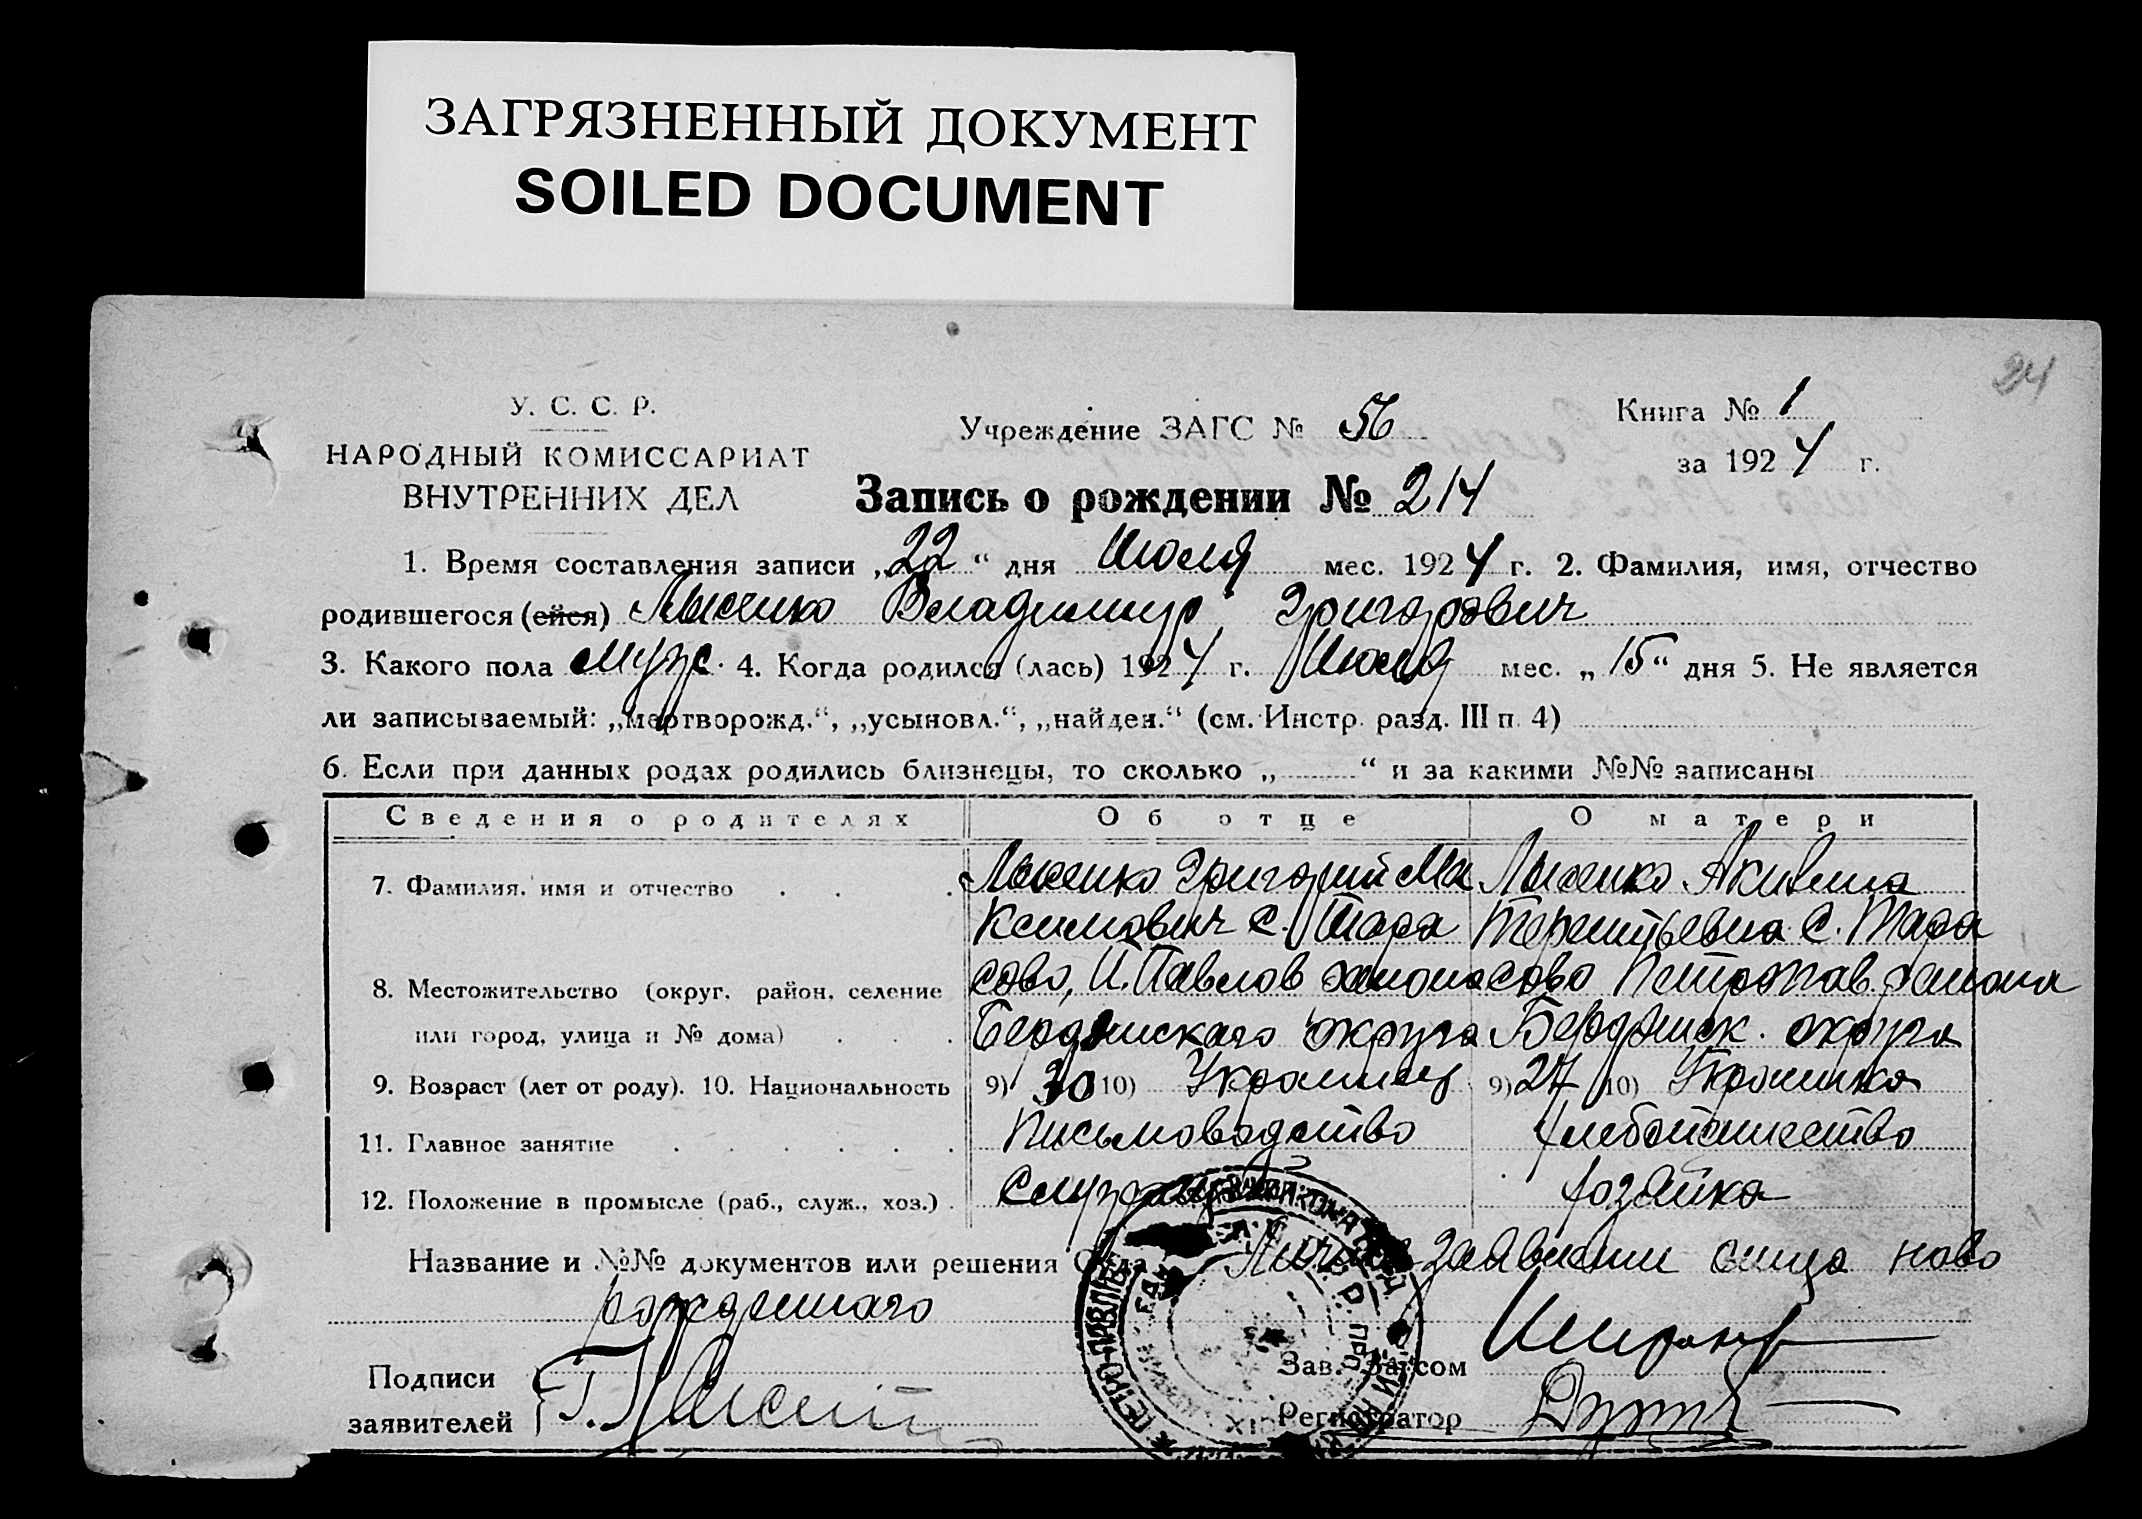 ЗАГРЯЗНЕННЫЙ ДОКУМЕНТ
SOILED DOCUMENT
24
У. С. С. Р.
НАРОДНЫЙ КОМИССАРИАТ
ВНУТРЕННИХ ДЕЛ
Учреждение ЗАГС № 56
Книга № 1
за 1924 г.
Запись о рождении № 214
1. Время составления записи „22“ дня Июля мес. 1924 г. 2. Фамилия, имя, отчество
родившегося (ейся) Лысенко Владимир Григорович
3. Какого пола муж. 4. Когда родился (лась) 1924 г. Июля мес. „15“ дня 5. Не является
ли записываемый: „мертворожд.“, „усыновл.“, „найден.“ (см. Инстр. разд. III п. 4)
6. Если при данных родах родились близнецы, то сколько „ “ и за какими №№ записаны
Сведения о родителях Об отце О матери
7. Фамилия, имя и отчество
Лысенко Григорий Ма
ксимович с. Тара
сово, П. Павлов району
Бердянскаго округа
Лысенко Акилина
Терентьевна с. Тара
сово Петропав. района
Бердянск. округа
8. Местожительство (округ, район, селение
или город, улица и № дома)
9. Возраст (лет от роду). 10. Национальность 9) 30 10) Украинец 9) 27 10) Украинка
11. Главное занятие Письмоводство Хлебопашество
12. Положение в промысле (раб., служ., хоз.) Служащий хозяйка
Название и №№ документов или решения Суда Личное заявлении отца ново
рожденнаго
Подписи
заявителей Г. Лисенко
Зав. Загсом
Регистратор